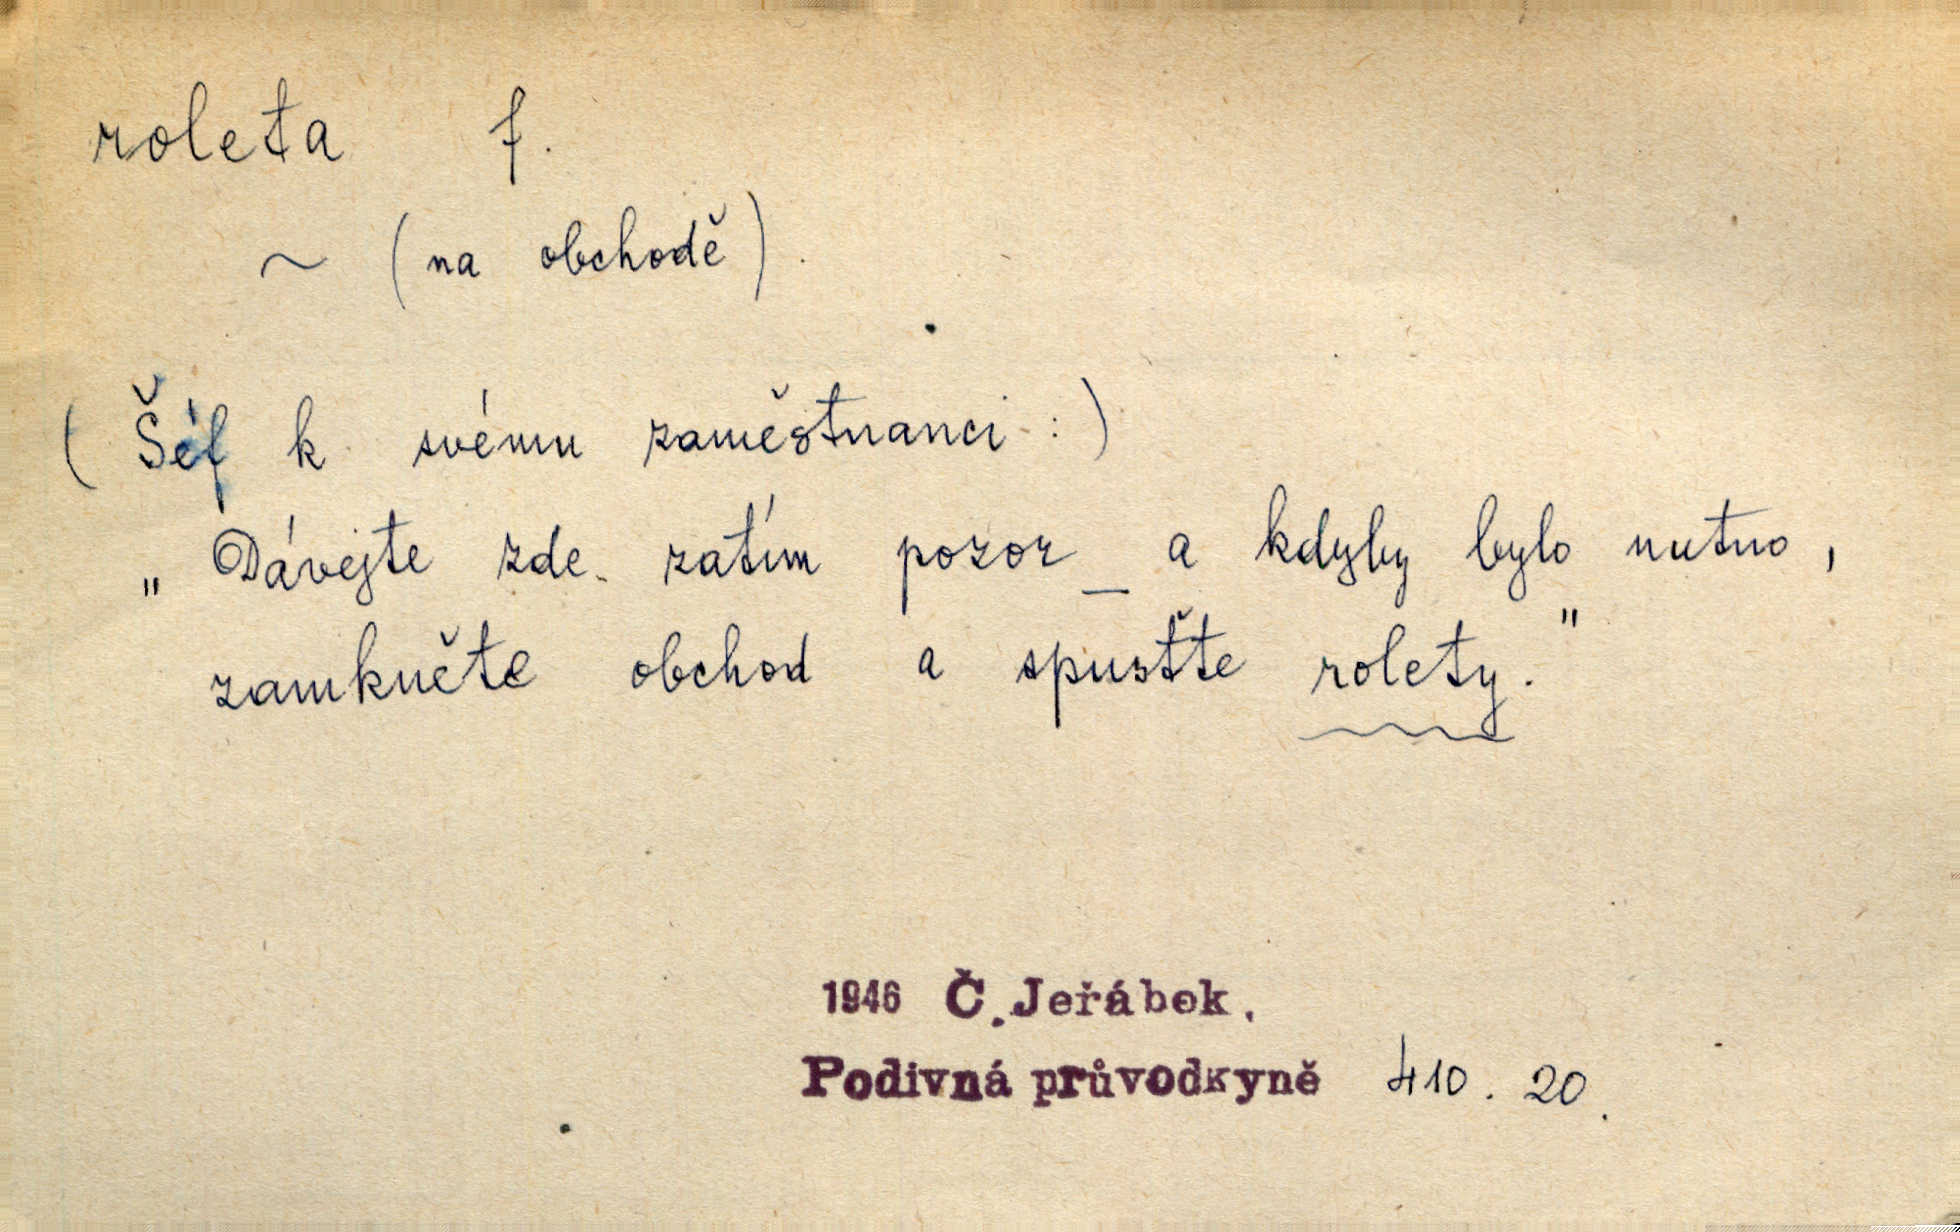 roleta f.
~ (na obchodě).
(Šéf k svému zaměstnanci:)
„Dávejte zde zatím pozor _ a kdyby bylo nutno,
zamkněte obchod a spusťte rolety."
1946 Č. Jeřábek.
Podivná průvodkyně 410. 20.